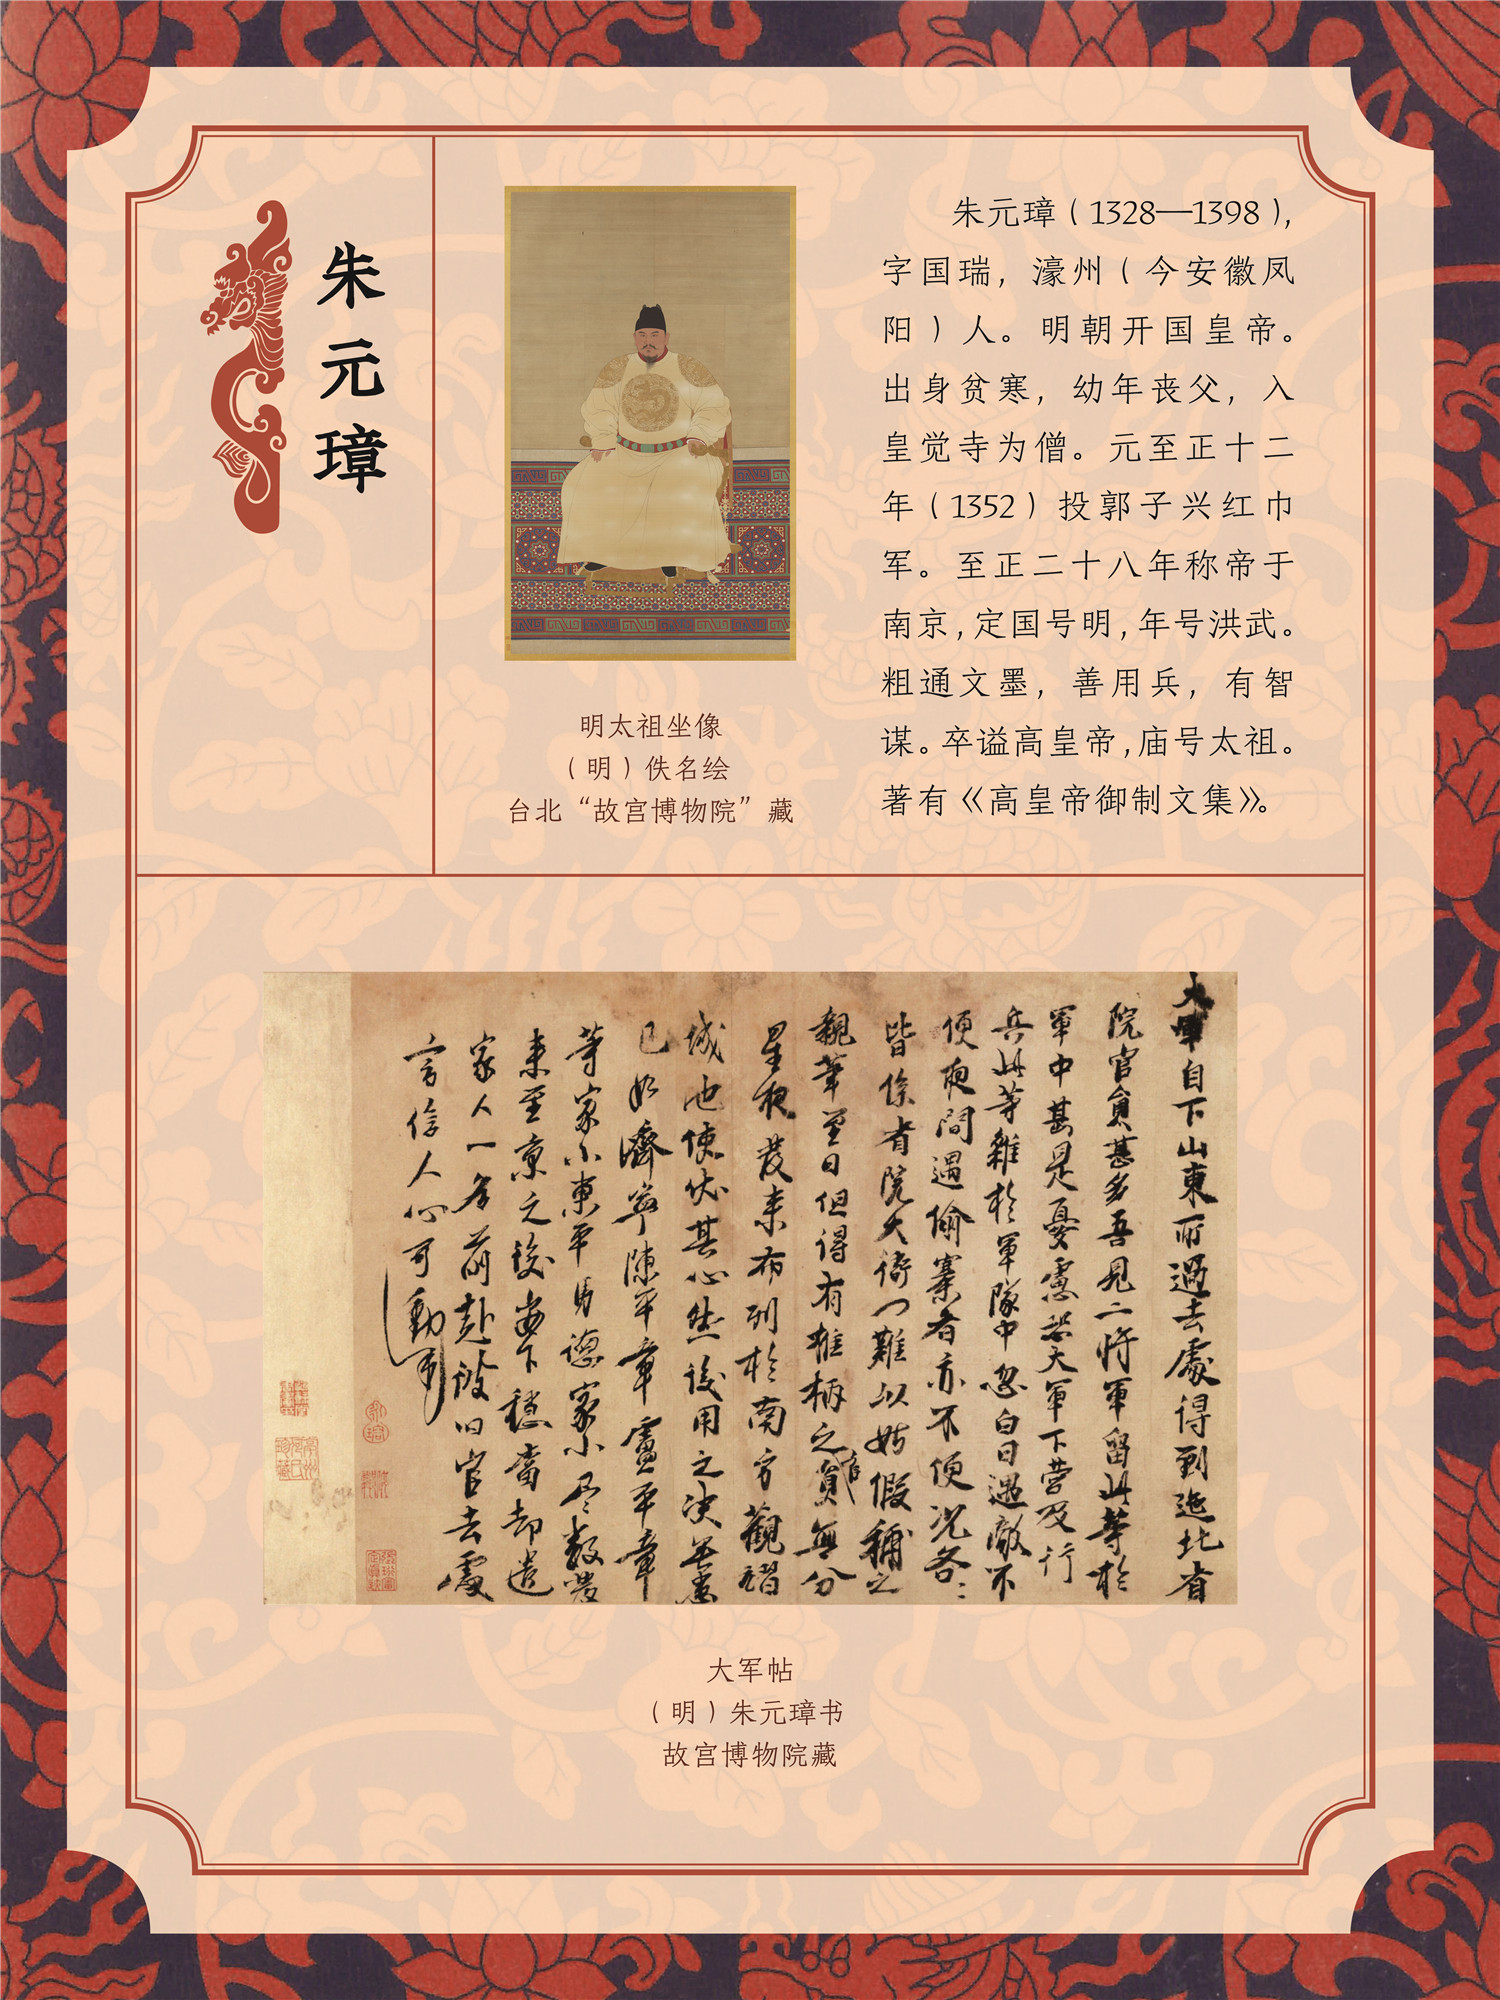 朱元璋
明太祖坐像
（明）佚名绘
台北“故宫博物院”藏
朱元璋（1328—1398），
字国瑞，濠州（今安徽凤
阳）人。明朝开国皇帝。
出身贫寒，幼年丧父，入
皇觉寺为僧。元至正十二
年（1352）投郭子兴红巾
军。至正二十八年称帝于
南京，定国号明，年号洪武。
粗通文墨，善用兵，有智
谋。卒谥高皇帝，庙号太祖。
著有《高皇帝御制文集》。
大軍自下山東所過去處得到迤北省
院官員甚多吾見二將軍留此等於
軍中甚是憂慮恐大軍下營及行
兵此等雜於軍隊中忽白日遇敵不
便夜間遇偷寨者亦不便況各
皆係省院大衙門難以姑假補之
親筆至日但得有椎柄之官員無分
星夜發來布列於南方觀
城池使伏其心然後用之決無患
已如濟寧陳平章盧平章
等家小東平馬德家小盡數發
來至京之後安下穩當却遣
家人一名前赴彼旧官去處
言信人心可動
大军帖
（明）朱元璋书
故宫博物院藏